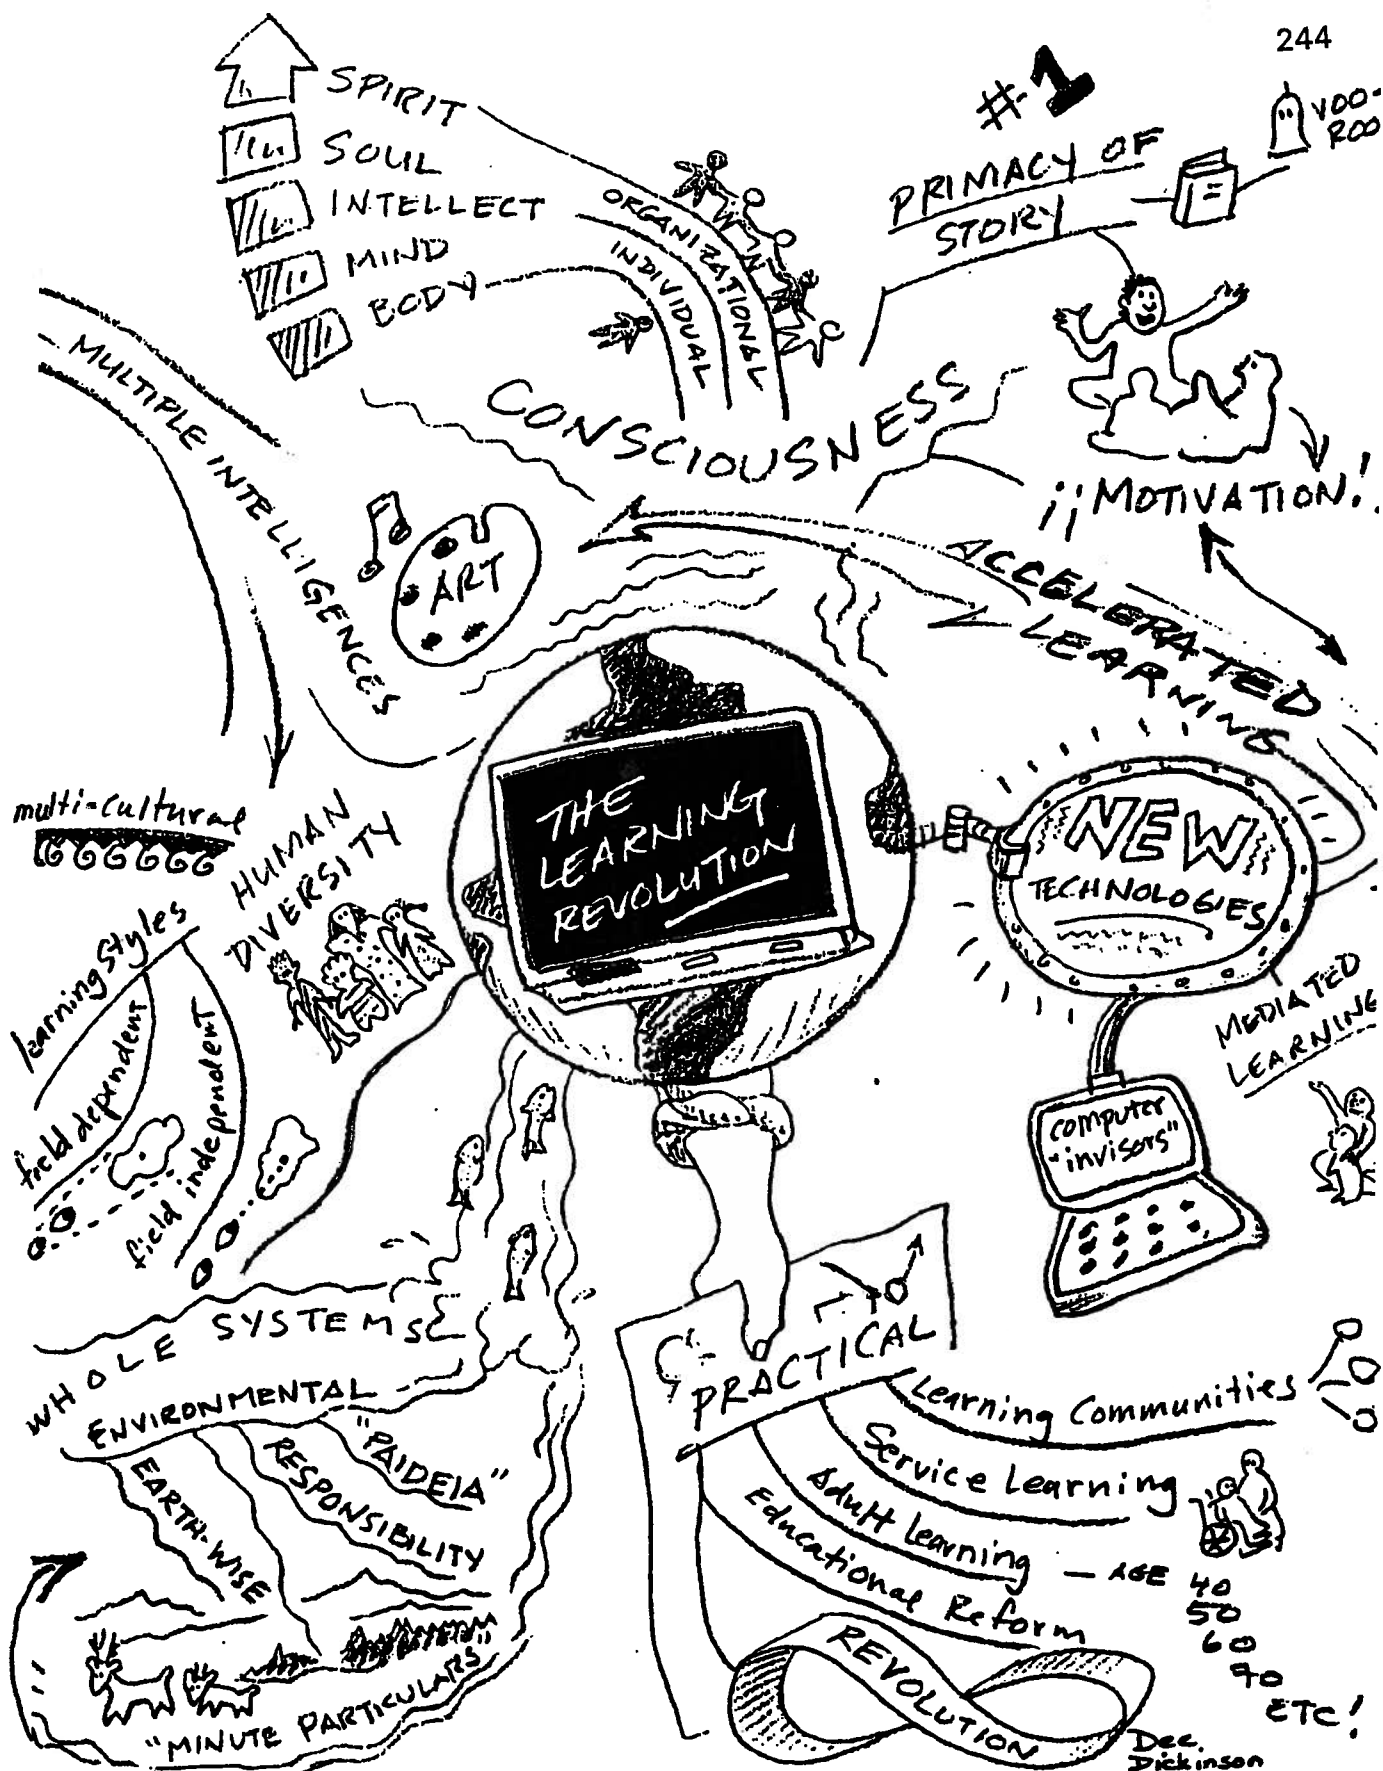 244
SPIRIT
SOUL
INTELLECT
MIND
BODY
ORGANIZATIONAL
INDIVIDUAL
#1
PRIMACY OF
STORY
VOO-
ROO
CONSCIOUSNESS
¡¡MOTIVATION!
MULTIPLE INTELLIGENCES
ART
ACCELERATED
LEARNING
THE
LEARNING
REVOLUTION
NEW
TECHNOLOGIES
MEDIATED
LEARNING
computer
"invisors"
multi-cultural
HUMAN
DIVERSITY
learning styles
field dependent
field independent
WHOLE SYSTEMS
ENVIRONMENTAL
"PAIDEIA"
RESPONSIBILITY
EARTH-WISE
"MINUTE PARTICULARS"
PRACTICAL
Learning Communities
Service Learning
Adult Learning — AGE 40
50
60
70
ETC!
Educational Reform
REVOLUTION
Dee
Dickinson